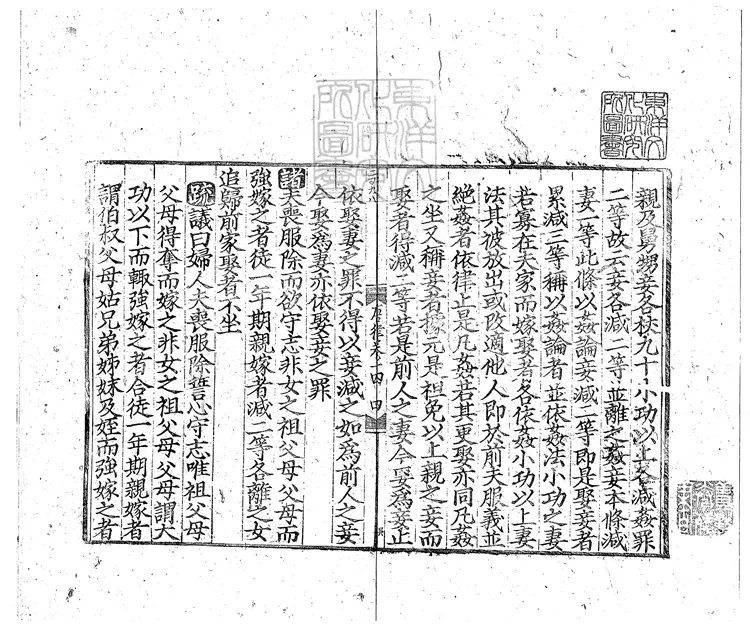 親及舅甥妾各杖九十小功以上各減姦罪
二等故云妾各減二等並離之姦妾本條減
妻一等此條以姦論妾減二等即是娶妾者
累減三等稱以姦論者並依姦法小功之妻
若寡在夫家而嫁娶者各依姦小功以上妻
法其被放出或改適他人即於前夫服義並
絕姦者依律止是凡姦若其更娶亦同凡姦
之坐又稱妾者據元是袒免以上親之妾而
娶者得減二等若是前人之妻今娶為妾止
依娶妻之罪不得以妾減之如為前人之妾
今娶為妻亦依娶妾之罪
諸夫喪服除而欲守志非女之祖父母父母而
強嫁之者徒一年期親嫁者減二等各離之女
追歸前家娶者不坐
疏議曰婦人夫喪服除誓心守志唯祖父母
父母得奪而嫁之非女之祖父母父母謂大
功以下而輒強嫁之者合徒一年期親嫁者
謂伯叔父母姑兄弟姊妹及姪而強嫁之者